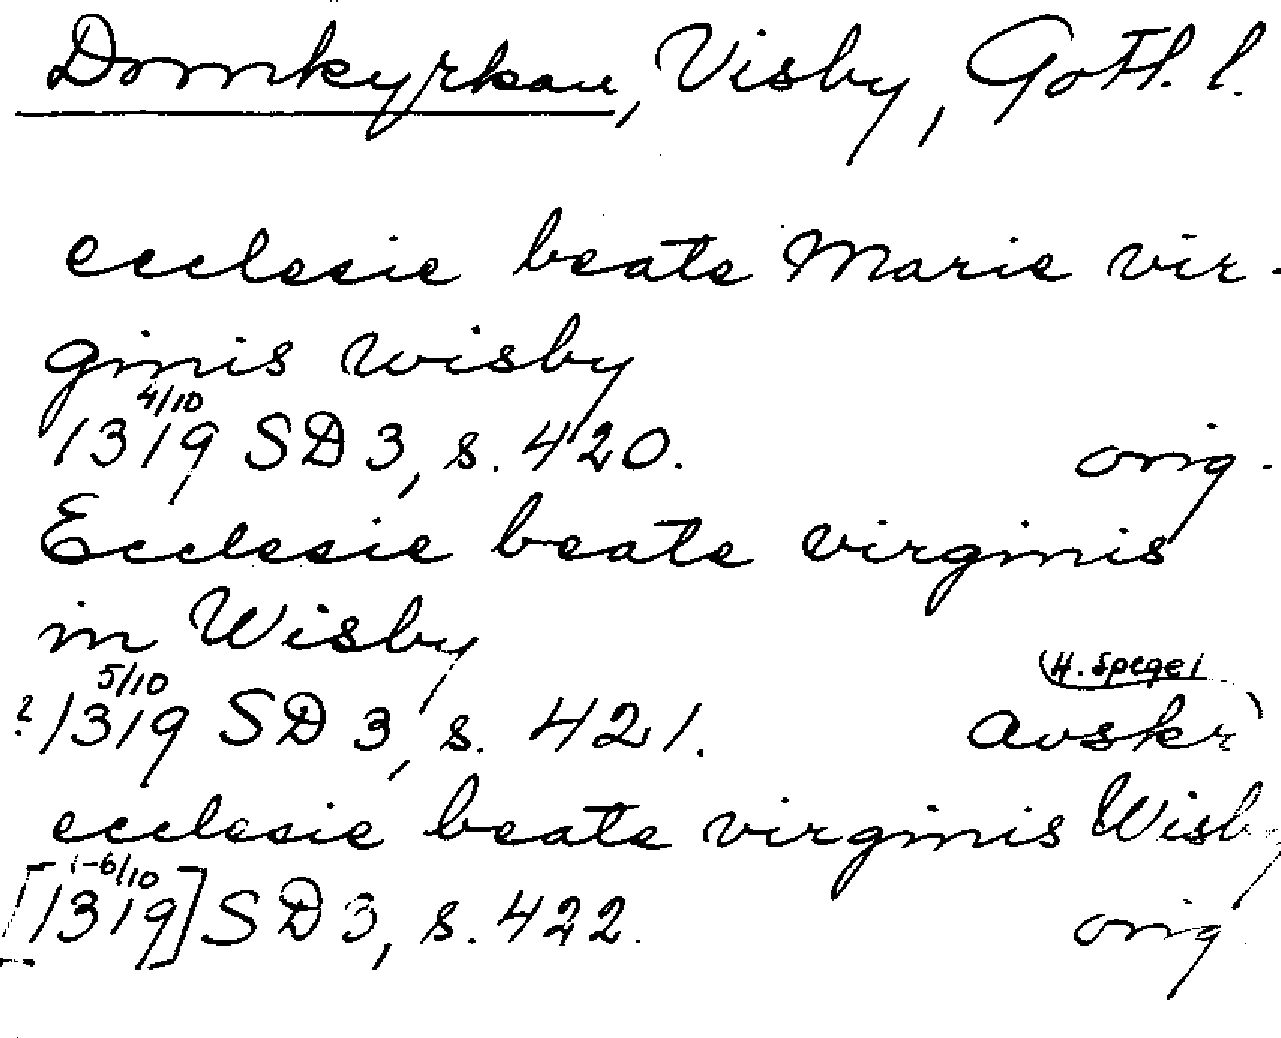 Domkyrkan, Visby, Gotl. l.
ecclesie beate Marie vir-
ginis wisby
4/10
1319 SD 3, s. 420. orig.
Ecclesie beate virginis
in Wisby
5/10 (H. Spegel
? 1319 SD 3, s. 421. avskr)
ecclesie beate virginis Wisby
1-6/10
[1319] SD 3, s. 422. orig